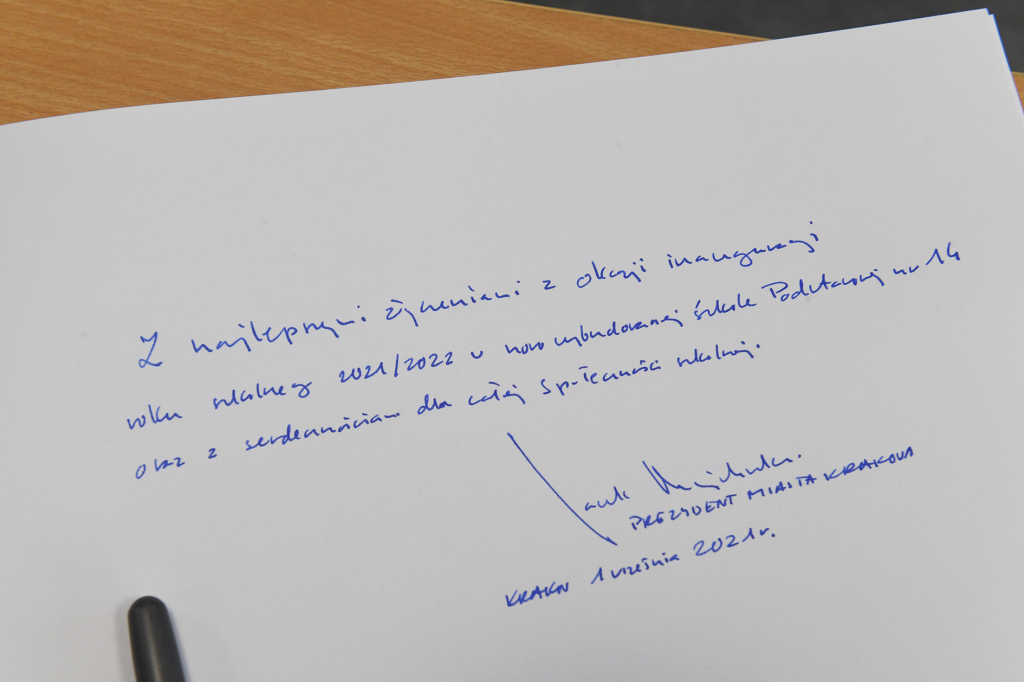 Z najlepszymi życzeniami z okazji inauguracji
roku szkolnego 2021/2022 w nowo wybudowanej Szkole Podstawowej nr 14
oraz z serdecznościami dla całej Społeczności szkolnej.
Jacek Majchrowski.
PREZYDENT MIASTA KRAKOWA
KRAKÓW 1 września 2021 r.